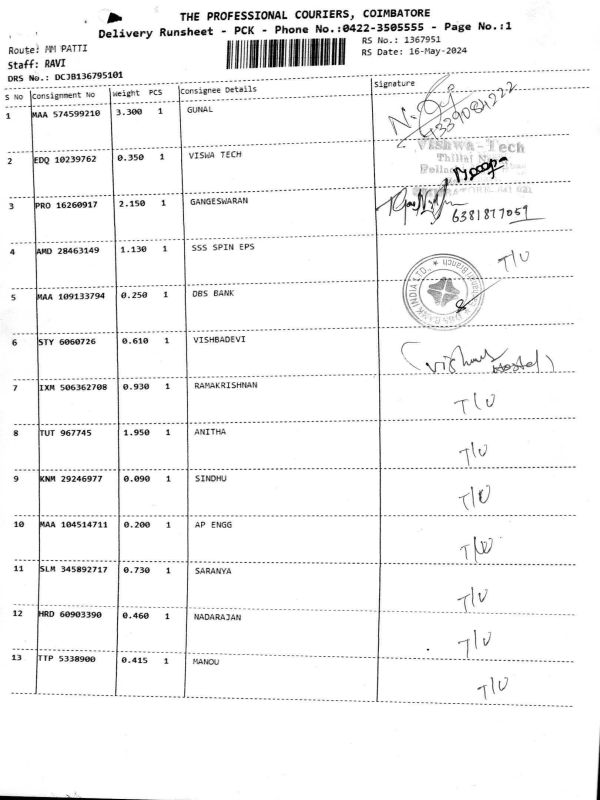 THE PROFESSIONAL COURIERS, COIMBATORE
Delivery Runsheet - PCK - Phone No.:0422-3505555 - Page No.:1
Route: MM PATTI
RS No.: 1367951
Staff: RAVI
RS Date: 16-May-2024
DRS No.: DCJB136795101
S No Consignment No Weight PCS Consignee Details Signature
1 MAA 574599210 3.300 1 GUNAL
2 EDQ 10239762 0.350 1 VISWA TECH Vishwa-Tech
3 PRO 16260917 2.150 1 GANGESWARAN 6381877059
4 AMD 28463149 1.130 1 SSS SPIN EPS T/U
5 MAA 109133794 0.250 1 DBS BANK INDIA LTD.,
6 STY 6060726 0.610 1 VISHBADEVI
7 IXM 506362708 0.930 1 RAMAKRISHNAN T/U
8 TUT 967745 1.950 1 ANITHA T/U
9 KNM 29246977 0.090 1 SINDHU T/U
10 MAA 104514711 0.200 1 AP ENGG T/U
11 SLM 345892717 0.730 1 SARANYA T/U
12 HRD 60903390 0.460 1 NADARAJAN T/U
13 TTP 5338900 0.415 1 MANOU T/U